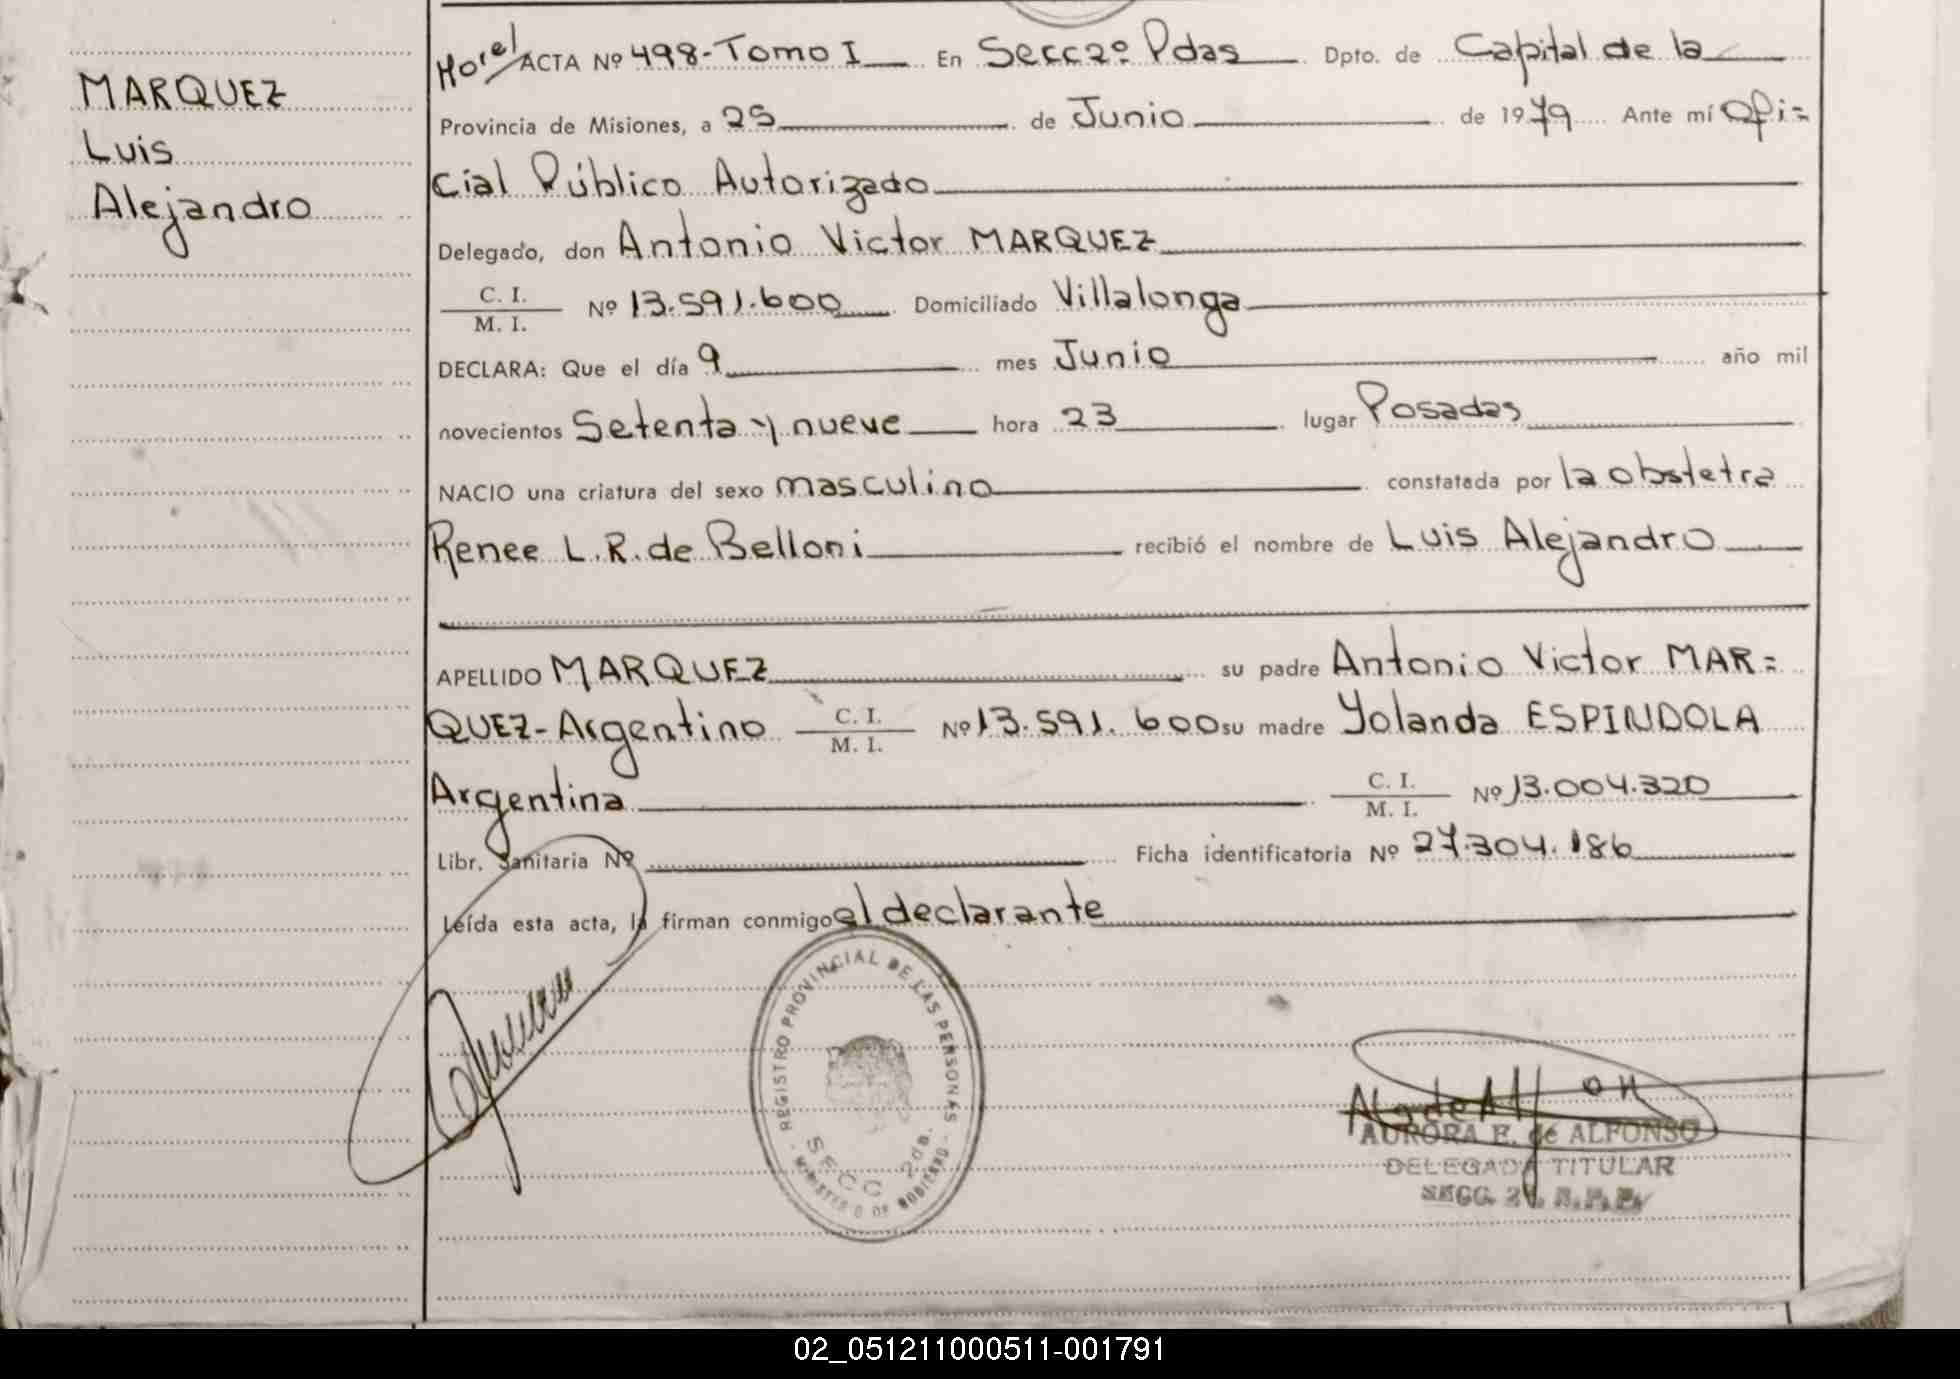 MARQUEZ
Luis
Alejandro
ACTA Nº 498-Tomo I En Secc 2º Pdas Dpto. de Capital de la
Provincia de Misiones, a 25 de Junio de 1979 Ante mí Ofi=
cial Público Autorizado
Delegado, don Antonio Victor MARQUEZ
C. I.
M. I. Nº 13.591.600 Domiciliado Villalonga
DECLARA: Que el día 9 mes Junio año mil
novecientos Setenta y nueve hora 23 lugar Posadas
NACIO una criatura del sexo masculino constatada por la obstetra
Renee L.R. de Belloni recibió el nombre de Luis Alejandro
APELLIDO MARQUEZ su padre Antonio Victor MAR=
QUEZ-Argentino C. I.
M. I. Nº 13.591.600 su madre Yolanda ESPINDOLA
Argentina C. I.
M. I. Nº 13.004.320
Libr. Sanitaria Nº Ficha identificatoria Nº 27.304.186
Leída esta acta, la firman conmigo el declarante
REGISTRO PROVINCIAL DE LAS PERSONAS
SECC 2da.
MINISTERIO DE GOBIERNO
AURORA E. de ALFONSO
DELEGADA TITULAR
SECC.
02_051211000511-001791